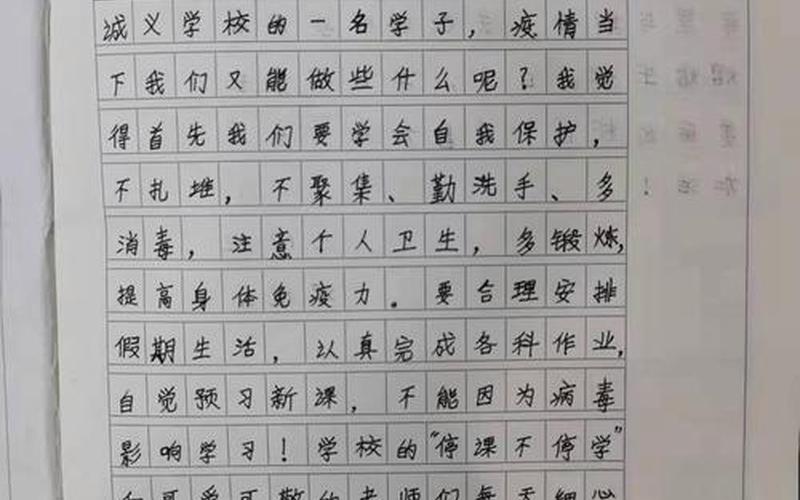 诚义学校的一名学子，疫情当
下我们又能做些什么呢？我觉
得首先我们要学会自我保护，
不扎堆，不聚集、勤洗手、多
消毒，注意个人卫生，多锻炼，
提高身体免疫力。要合理安排
假期生活，以真完成各科作业，
自觉预习新课，不能因为病毒
影响学习！学校的“停课不停学”
和可爱可敬的老师们每天细心